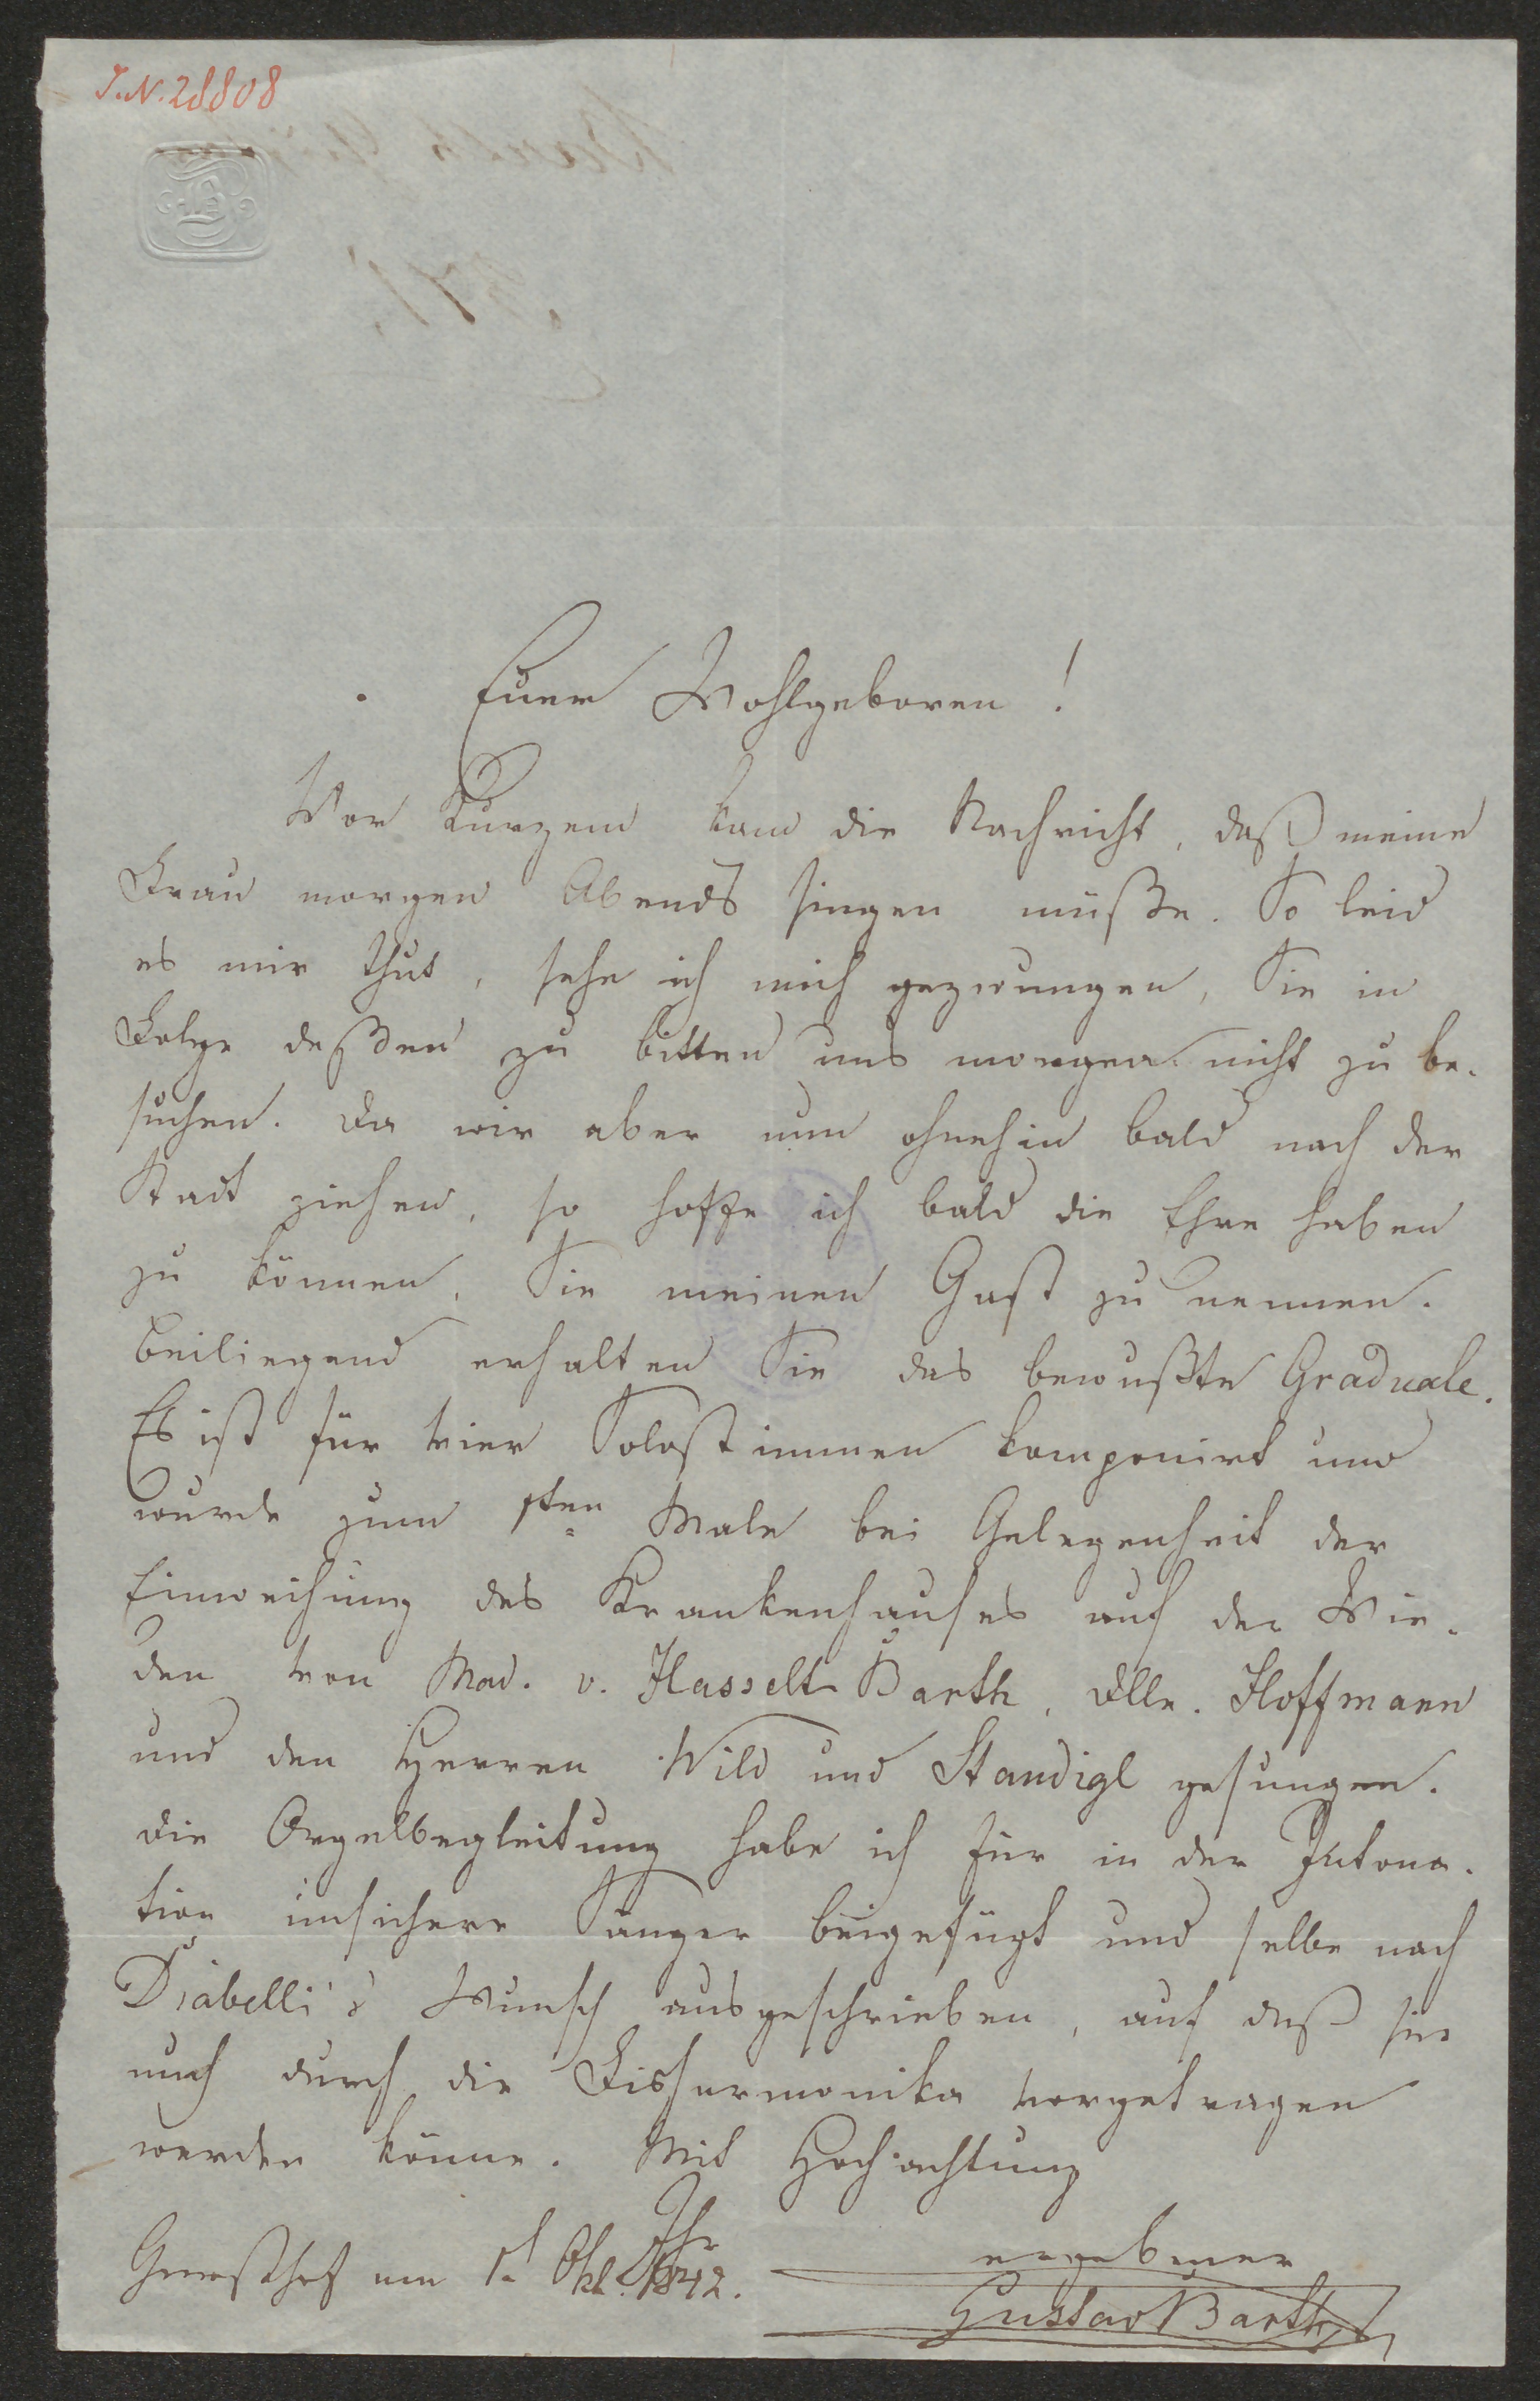 I.N. 28808
Euer Wohlgeboren!
Vor Kurzem kam die Nachricht, daß meine
Frau morgen Abends singen müße. So leid
es mir thut, sehe ich mich gezwungen, Sie in
Folge deßen zu bitten uns morgen nicht zu be-
suchen. Da wir aber nun ohnehin bald nach der
Stadt ziehen, so hoffe ich bald die Ehre haben
zu können, Sie meinen Gast zu nennen.
Beiliegend erhalten Sie das bewußte Graduale.
Es ist für vier Solostimmen komponirt und
wurde zum 1ten Male bei Gelegenheit der
Einweihung des Krankenhauses auf der Wie-
den von Mad. v. Hasselt-Barth, Dlle. Hoffmann
und den Herren Wild und Standigl gesungen.
Die Orgelbegleitung habe ich für in der Intona-
tion unsichere Sänger beigefügt und selbe nach
Diabelli's Wunsch ausgeschrieben, auf daß sie
auch durch die Fisharmonika vorgetragen
werden könne. Mit Hochachtung
Ihr
ergebener
Gersthof am 1t Okt. 1842.
Gustav Barth